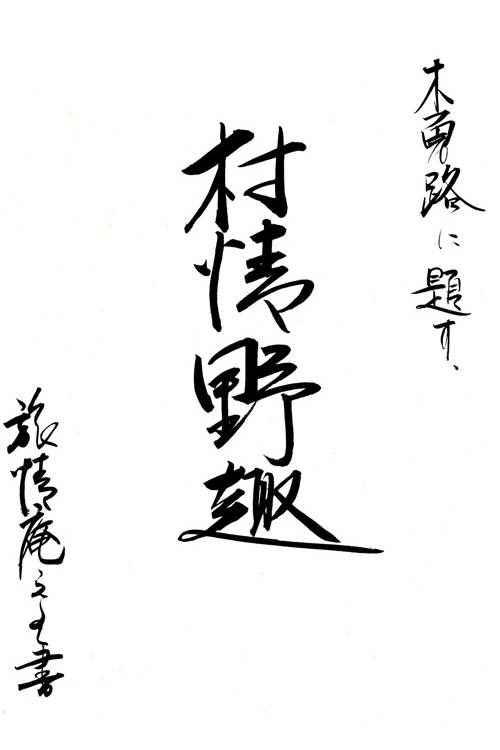 木曽路に題す、
村情野趣
旅情庵之主書